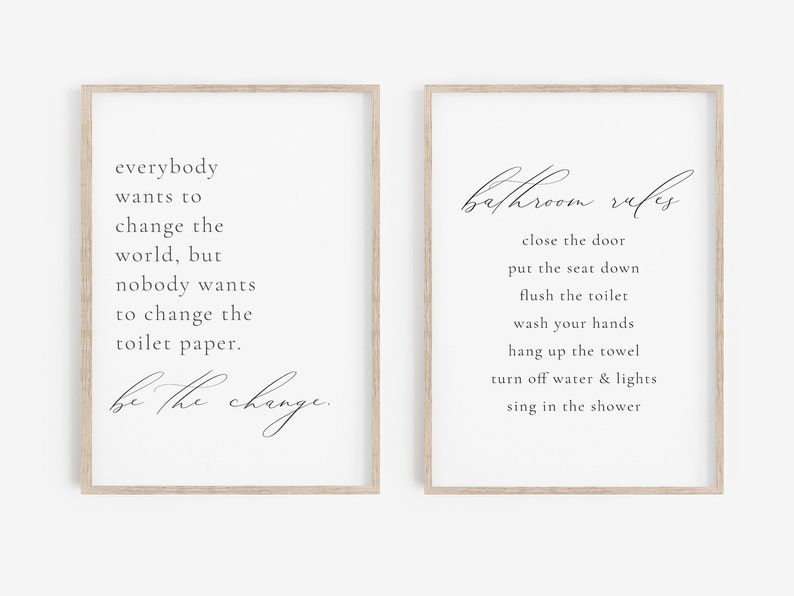 everybody
wants to
change the
world, but
nobody wants
to change the
toilet paper.
be the change.
bathroom rules
close the door
put the seat down
flush the toilet
wash your hands
hang up the towel
turn off water & lights
sing in the shower